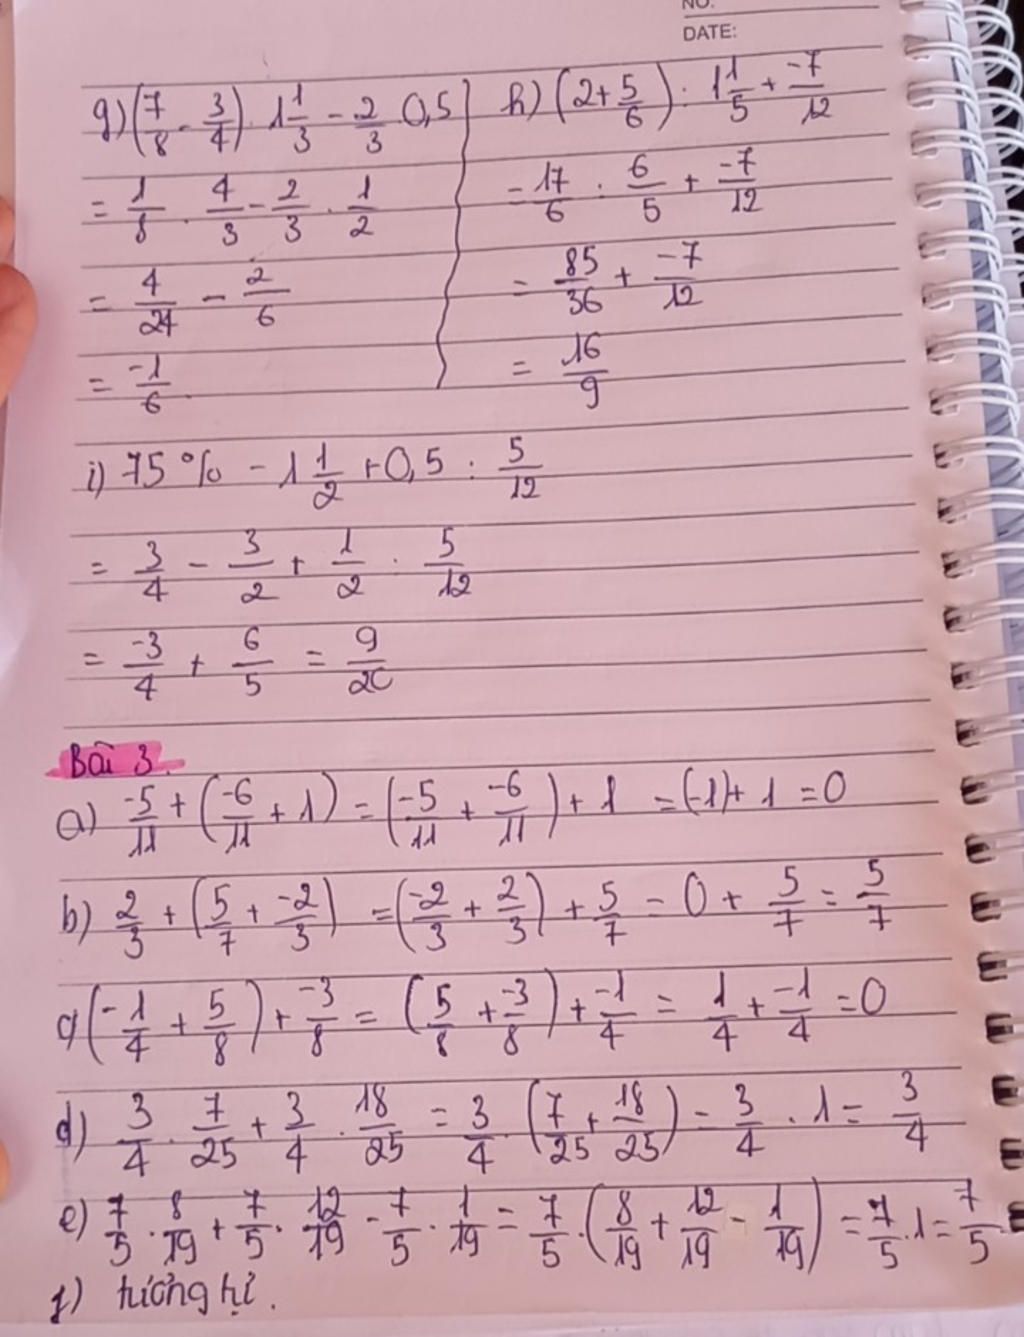 NO.
DATE:
g) (7/8 - 3/4) . 1 1/3 - 2/3 0,5
= 1/8 . 4/3 - 2/3 . 1/2
= 4/24 - 2/6
= -1/6
h) (2 + 5/6) : 1 1/5 + -7/12
= 17/6 : 6/5 + -7/12
= 85/36 + -7/12
= 16/9
i) 75% - 1 1/2 + 0,5 : 5/12
= 3/4 - 3/2 + 1/2 : 5/12
= -3/4 + 6/5 = 9/20
Bài 3.
a) -5/11 + (-6/11 + 1) = (-5/11 + -6/11) + 1 = (-1) + 1 = 0
b) 2/3 + (5/7 + -2/3) = (-2/3 + 2/3) + 5/7 = 0 + 5/7 = 5/7
c) (-1/4 + 5/8) + -3/8 = (5/8 + -3/8) + -1/4 = 1/4 + -1/4 = 0
d) 3/4 . 7/25 + 3/4 . 18/25 = 3/4 . (7/25 + 18/25) = 3/4 . 1 = 3/4
e) 7/5 . 8/19 + 7/5 . 12/19 - 7/5 . 1/19 = 7/5 . (8/19 + 12/19 - 1/19) = 7/5 . 1 = 7/5
f) tương tự.